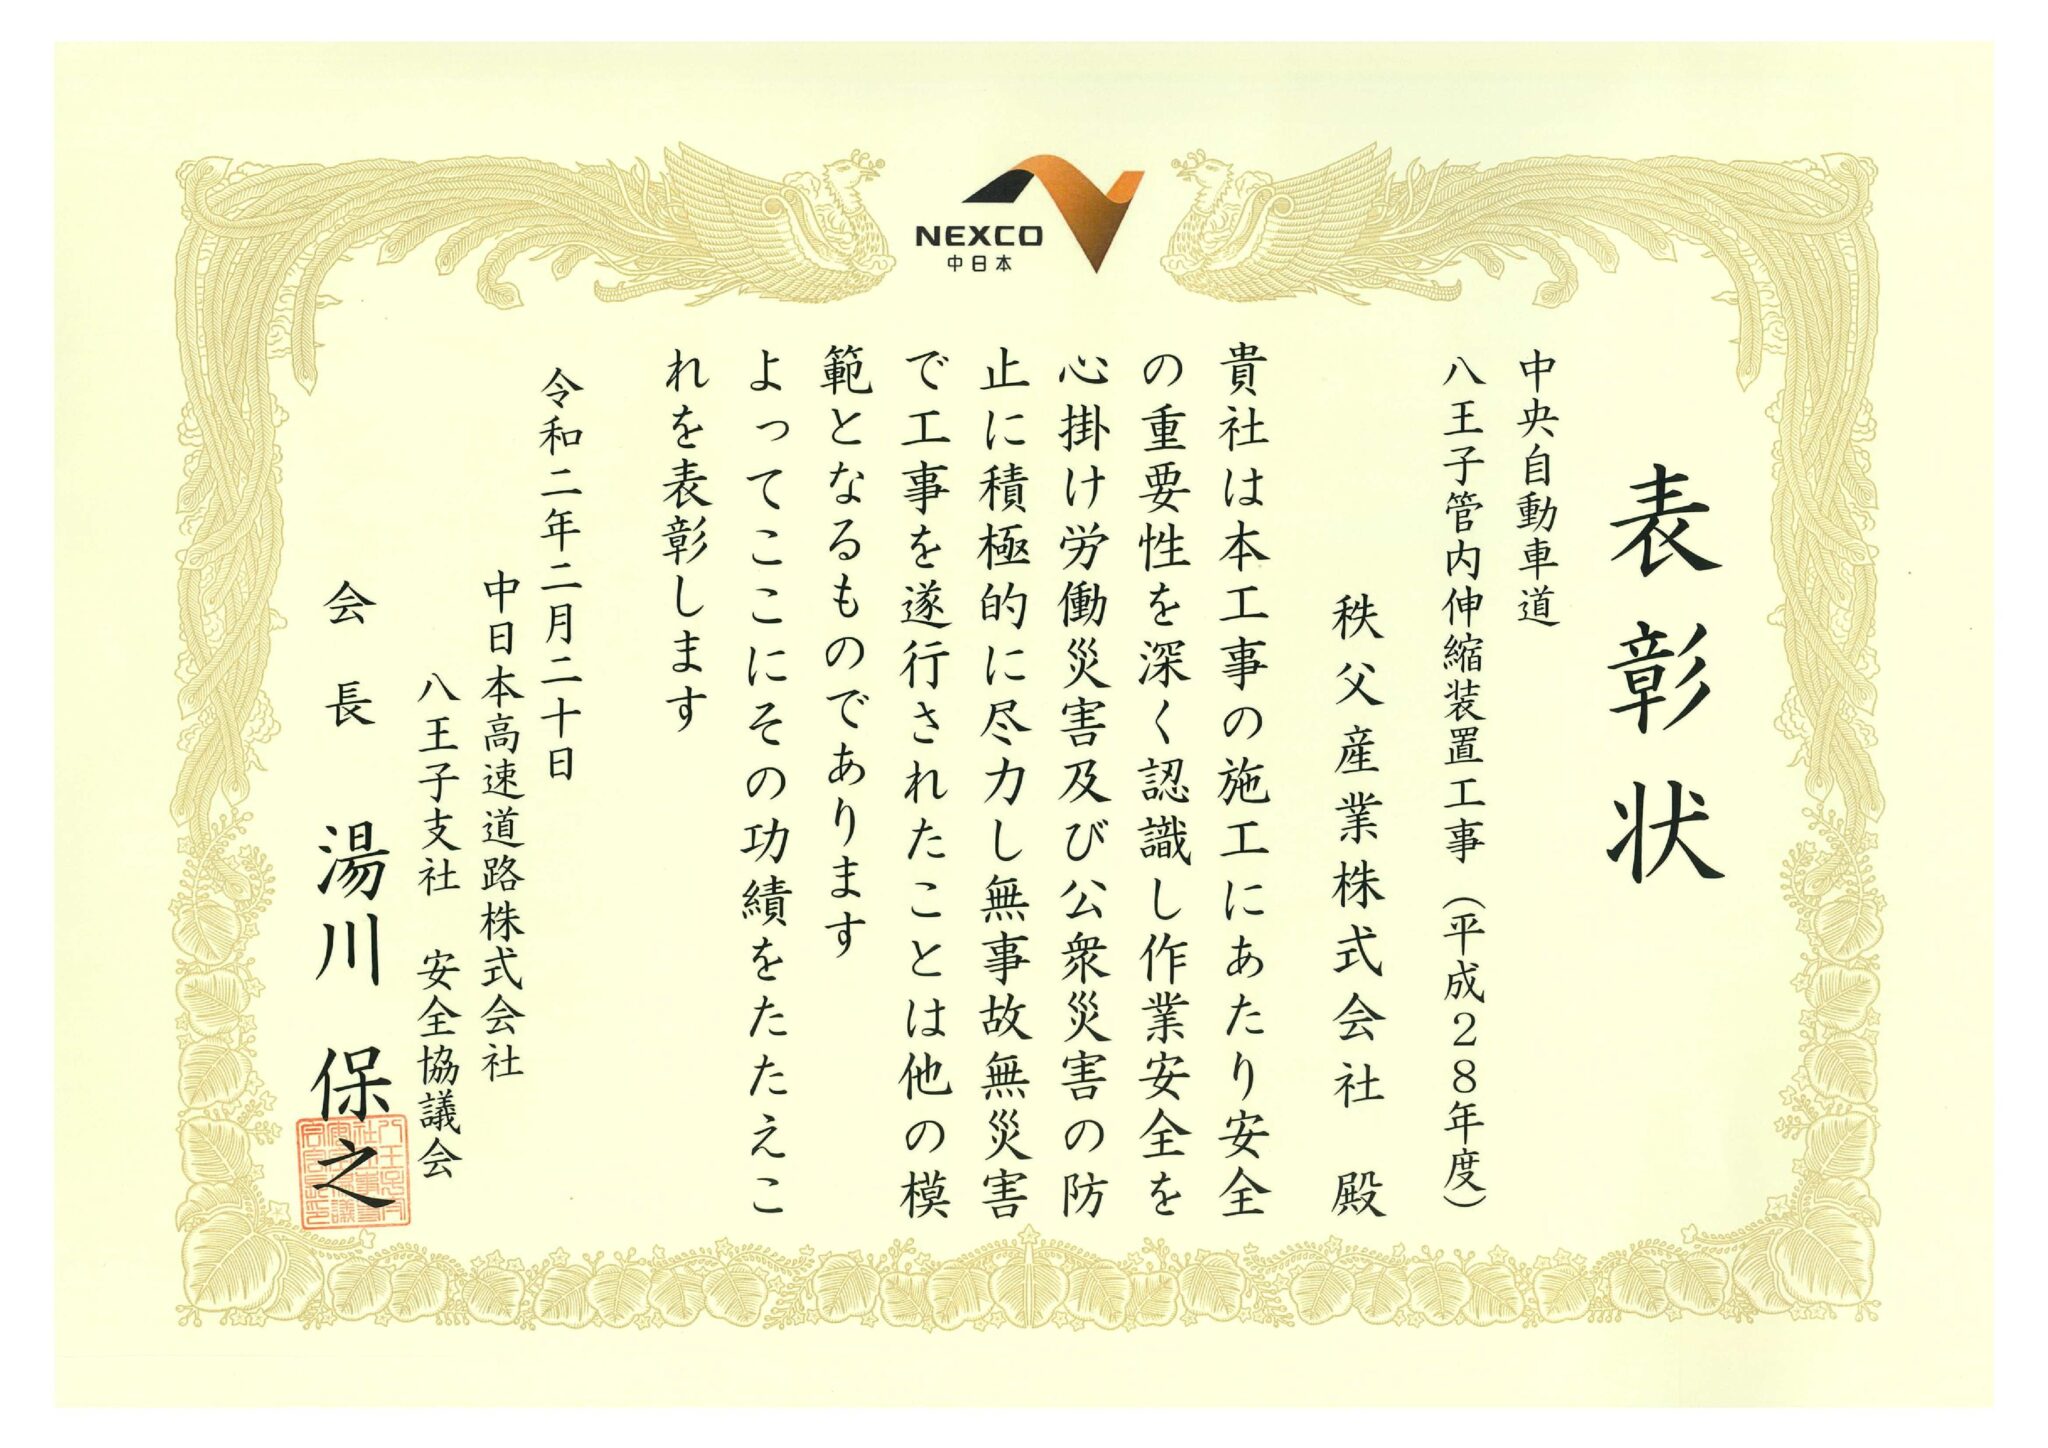 NEXCO
中日本
表彰状
中央自動車道
八王子管内伸縮装置工事（平成２８年度）
秩父産業株式会社 殿
貴社は本工事の施工にあたり安全
の重要性を深く認識し作業安全を
心掛け労働災害及び公衆災害の防
止に積極的に尽力し無事故無災害
で工事を遂行されたことは他の模
範となるものであります
よってここにその功績をたたえこ
れを表彰します
令和二年二月二十日
中日本高速道路株式会社
八王子支社 安全協議会
会長 湯川 保之